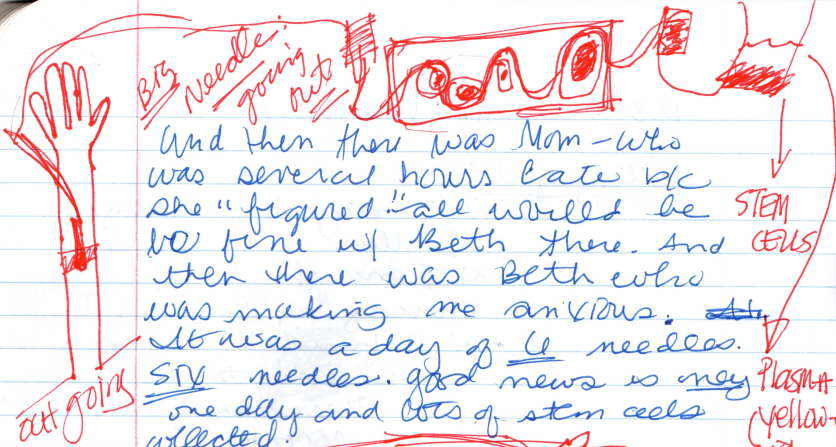 BIG
Needle:
going
out
And then there was Mom - who
was several hours late b/c
she "figured" all would be
fine w/ Beth there. And
then there was Beth who
was making me anxious.
It was a day of 6 needles.
SIX needles. good news is only
one day and lots of stem cells
collected.
STEM
CELLS
Plasma
(yellow-
out going